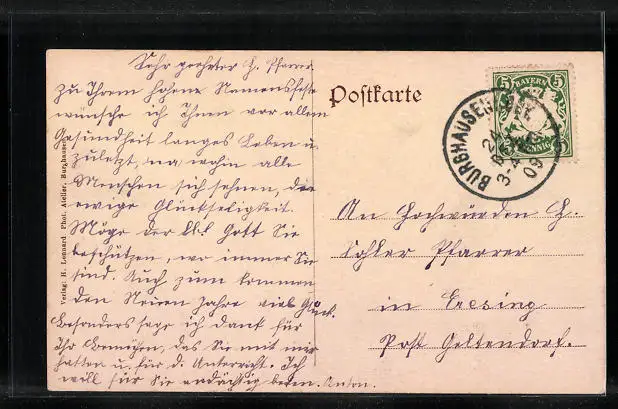 Sehr geehrter H. Pfarrer
zu Ihrem hohen Namensfeste
wünsche ich Ihnen vor allem
Gesundheit langes Leben u.
zuletzt, wohin alle
Menschen sich sehnen, die
ewige Glückseligkeit.
Möge der lb. Gott Sie
beschützen, wo immer Sie
sind. Auch zum kommenden
Neuen Jahre viel Glück.
Besonders sage ich dank für
Ihr das Sie mit mir
hatten u. für d. Unterricht. Ich
will für Sie andächtig beten. Anton.
Verlag: H. Leonard Phot. Atelier, Burghausen
Postkarte
5 BAYERN 5
PFENNIG
BURGHAUSEN
09
An Hochwürden H.
Pfarrer
in Eresing
Post Geltendorf.